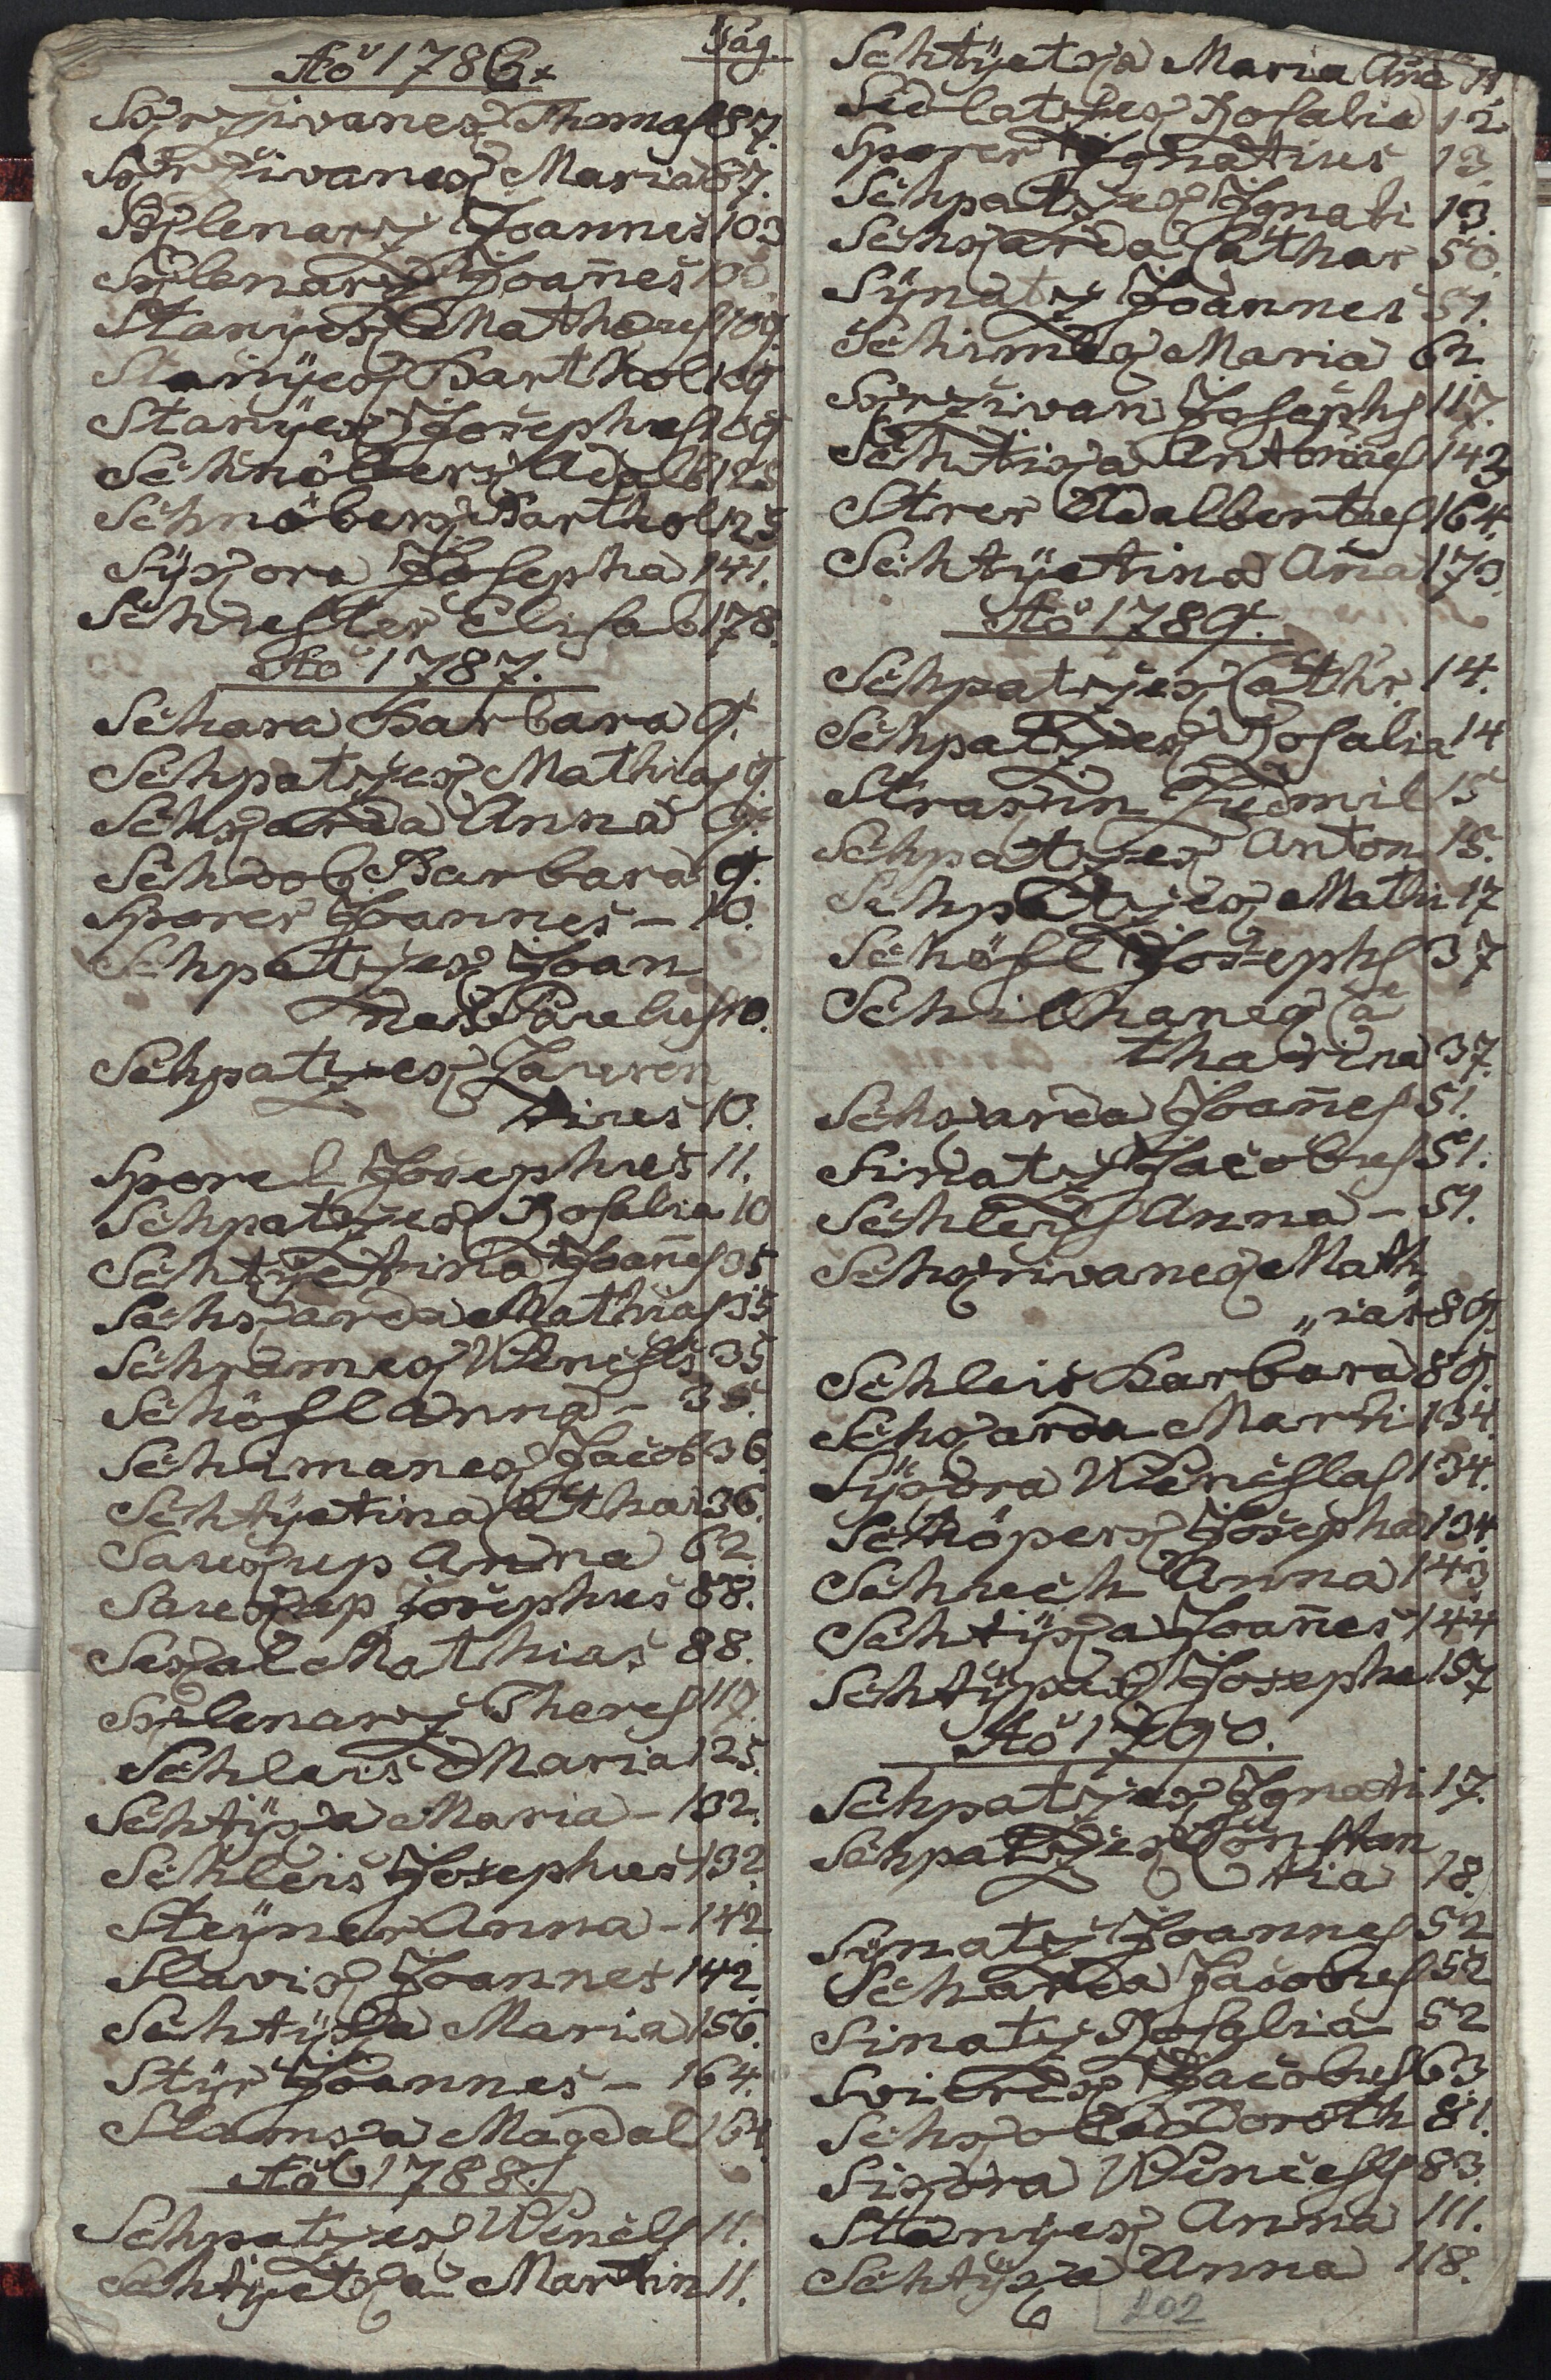 Aō 1786. Pag.
Skrziwanek Thomas 87.
Skrziwanek Maria 87.
Sklenarz Joannes 103
Sklenarz Joañes 103
Stanÿek Mathaeus 109.
Stanÿek Barthol 109
Stanÿek Josephus 109
Schnöberk Adalb 125
Schnöberk Barthol 125
Sÿkora Josepha 141.
Schuster Elisab 178.
Aō 1787.
Schara Barbara 9.
Schpatzek Mathias 9
Schkarda Anna 9.
Schwob Barbara 9.
Sporer Joannes - 10.
Schpatzek Joan
nes Paulus 10.
Schpatzek Lauren
tius 10.
Sporel Josephus 11.
Schpatzek Rosalia 10
Schtÿetina Joañes 35
Schkarda Mathias 35
Schramek Wencsls 35
Schösl Anna - 35.
Schimanek Jacob 36.
Schtÿetina Cathar 36.
Saukup Anna 62.
Saukup Josephus 88.
Sekal Mathias 88.
Sklenarz Theres 110.
Schleis Maria 125.
Schtÿka Maria - 132.
Schleis Josephus 132.
Steÿner Anna - 142
Slavik Joannes 142.
Schtÿka Maria 156.
Stÿr Joannes - 164.
Slamka Magdal 164
Aō 1788.
Schpatzek Wencls 11.
Schtÿetka Martin 11.
Schtÿetka Maria Aña 11
Sedlatzek Rosalia 12.
Sporer Ignatius 13
Schpatzek Ignati 13.
Schkarda Cathar 50.
Sÿnatz Joannes 51.
Schimek Maria 62.
Skrziwan Josephs 117.
Schtika Antonius 142
Strer Adalbertus 164.
Schtÿetina Aña 173.
Aō 1789.
Schpatzek Cathr 14.
Schpatzek Rosalia 14
Schpatzek Anton 15.
Schpatzek Mathi 17
Schösl Josephs 37
Schilhanek Ca
tharina 37.
Schkarda Joañes 51.
Sinatz Jacobus 51.
Schleis Anna - 51.
Schkriwanek Math
„ias 89.
Schleis Barbara 89.
Schkarda Marti 134.
Sÿkora Wenceslas 134.
Schöperk Josepha 134.
Schuech Anna 143
Schtÿka Joañes 144
Schtÿpak Josepha 157
Aō 1790.
Schpatzek Ignati 17.
Schpatzek Con stan
tia 18.
Sÿnatz Joannes 52
Scharda Jacobus 52
Sinatz Rosalia 52
Jacobus 63
Doroth 81.
Sikora Wencesls 83.
Stanÿek Anna 111.
Schtÿka Anna 118.
202